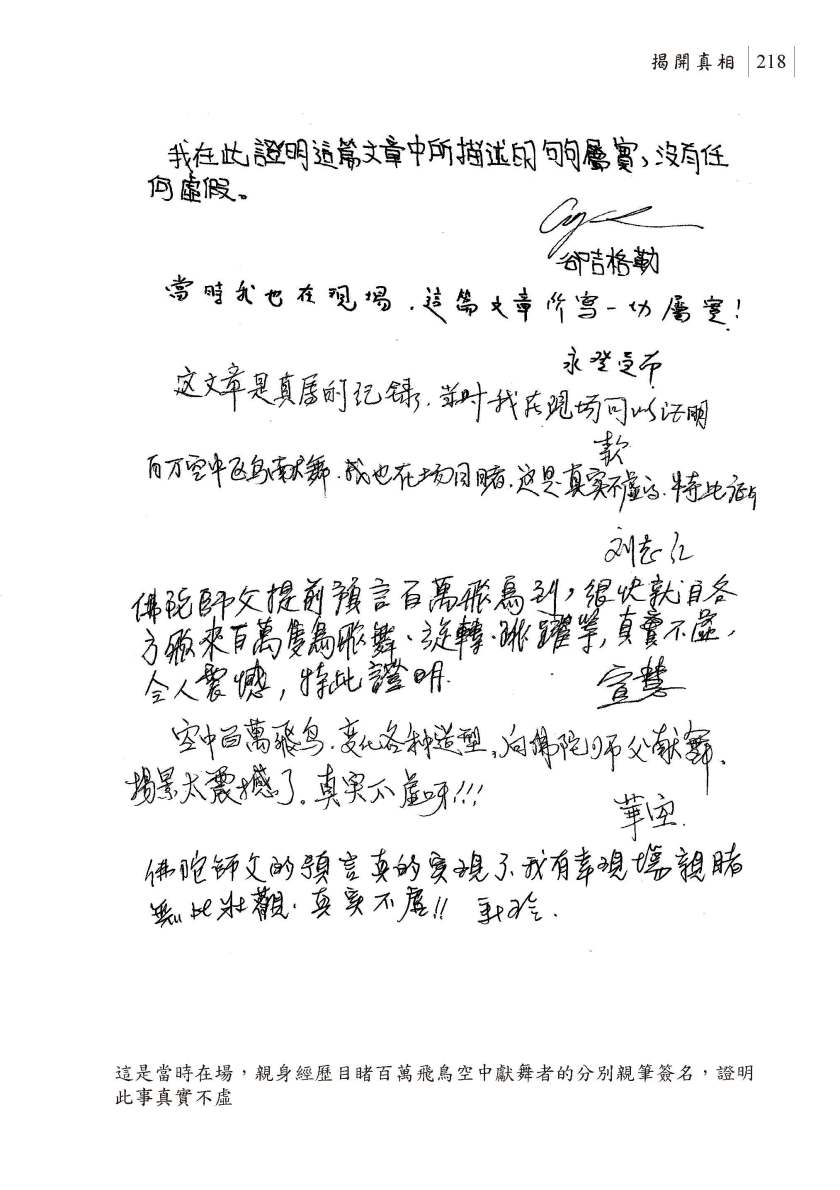 揭開真相 218
我在此證明這篇文章中所描述的句句屬實，沒有任
何虛假。
卻吉格勒
當時我也在現場，這篇文章所寫一切屬實！
永登受布
这文章是真實的记录，当时我在現场可以证明
款
百万空中飞鸟献舞，我也在场目睹，这是真实不虛的，特此证明
刘志江
佛陀師父提前預言百萬飛鳥到，很快就自各
方飛來百萬隻鳥飛舞、旋轉、跳躍等，真實不虛，
令人震憾，特此證明。
宣慧
空中百萬飛鸟，变化各种造型，向佛陀师父献舞，
場景太震撼了。真实不虛呀!!!
華空
佛陀師父的預言真的實現了，我有幸現場親睹
無比壯觀，真实不虛!!
這是當時在場，親身經歷目睹百萬飛鳥空中獻舞者的分別親筆簽名，證明
此事真實不虛